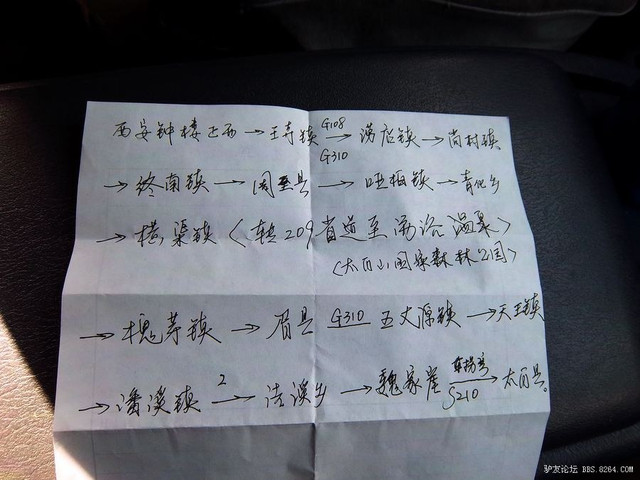 西安钟楼正西→王寺镇 G108 G310→涝店镇→尚村镇
→终南镇→周至县→哑柏镇→青化乡
→横渠镇〈转209省道至汤浴温泉〉
〈太白山国家森林公园〉
→槐芽镇→眉县 G310 五丈原镇→天王镇
→潘溪镇 2→清溪乡→魏家崖 S210→太白县。
驴友论坛 BBS.8264.COM